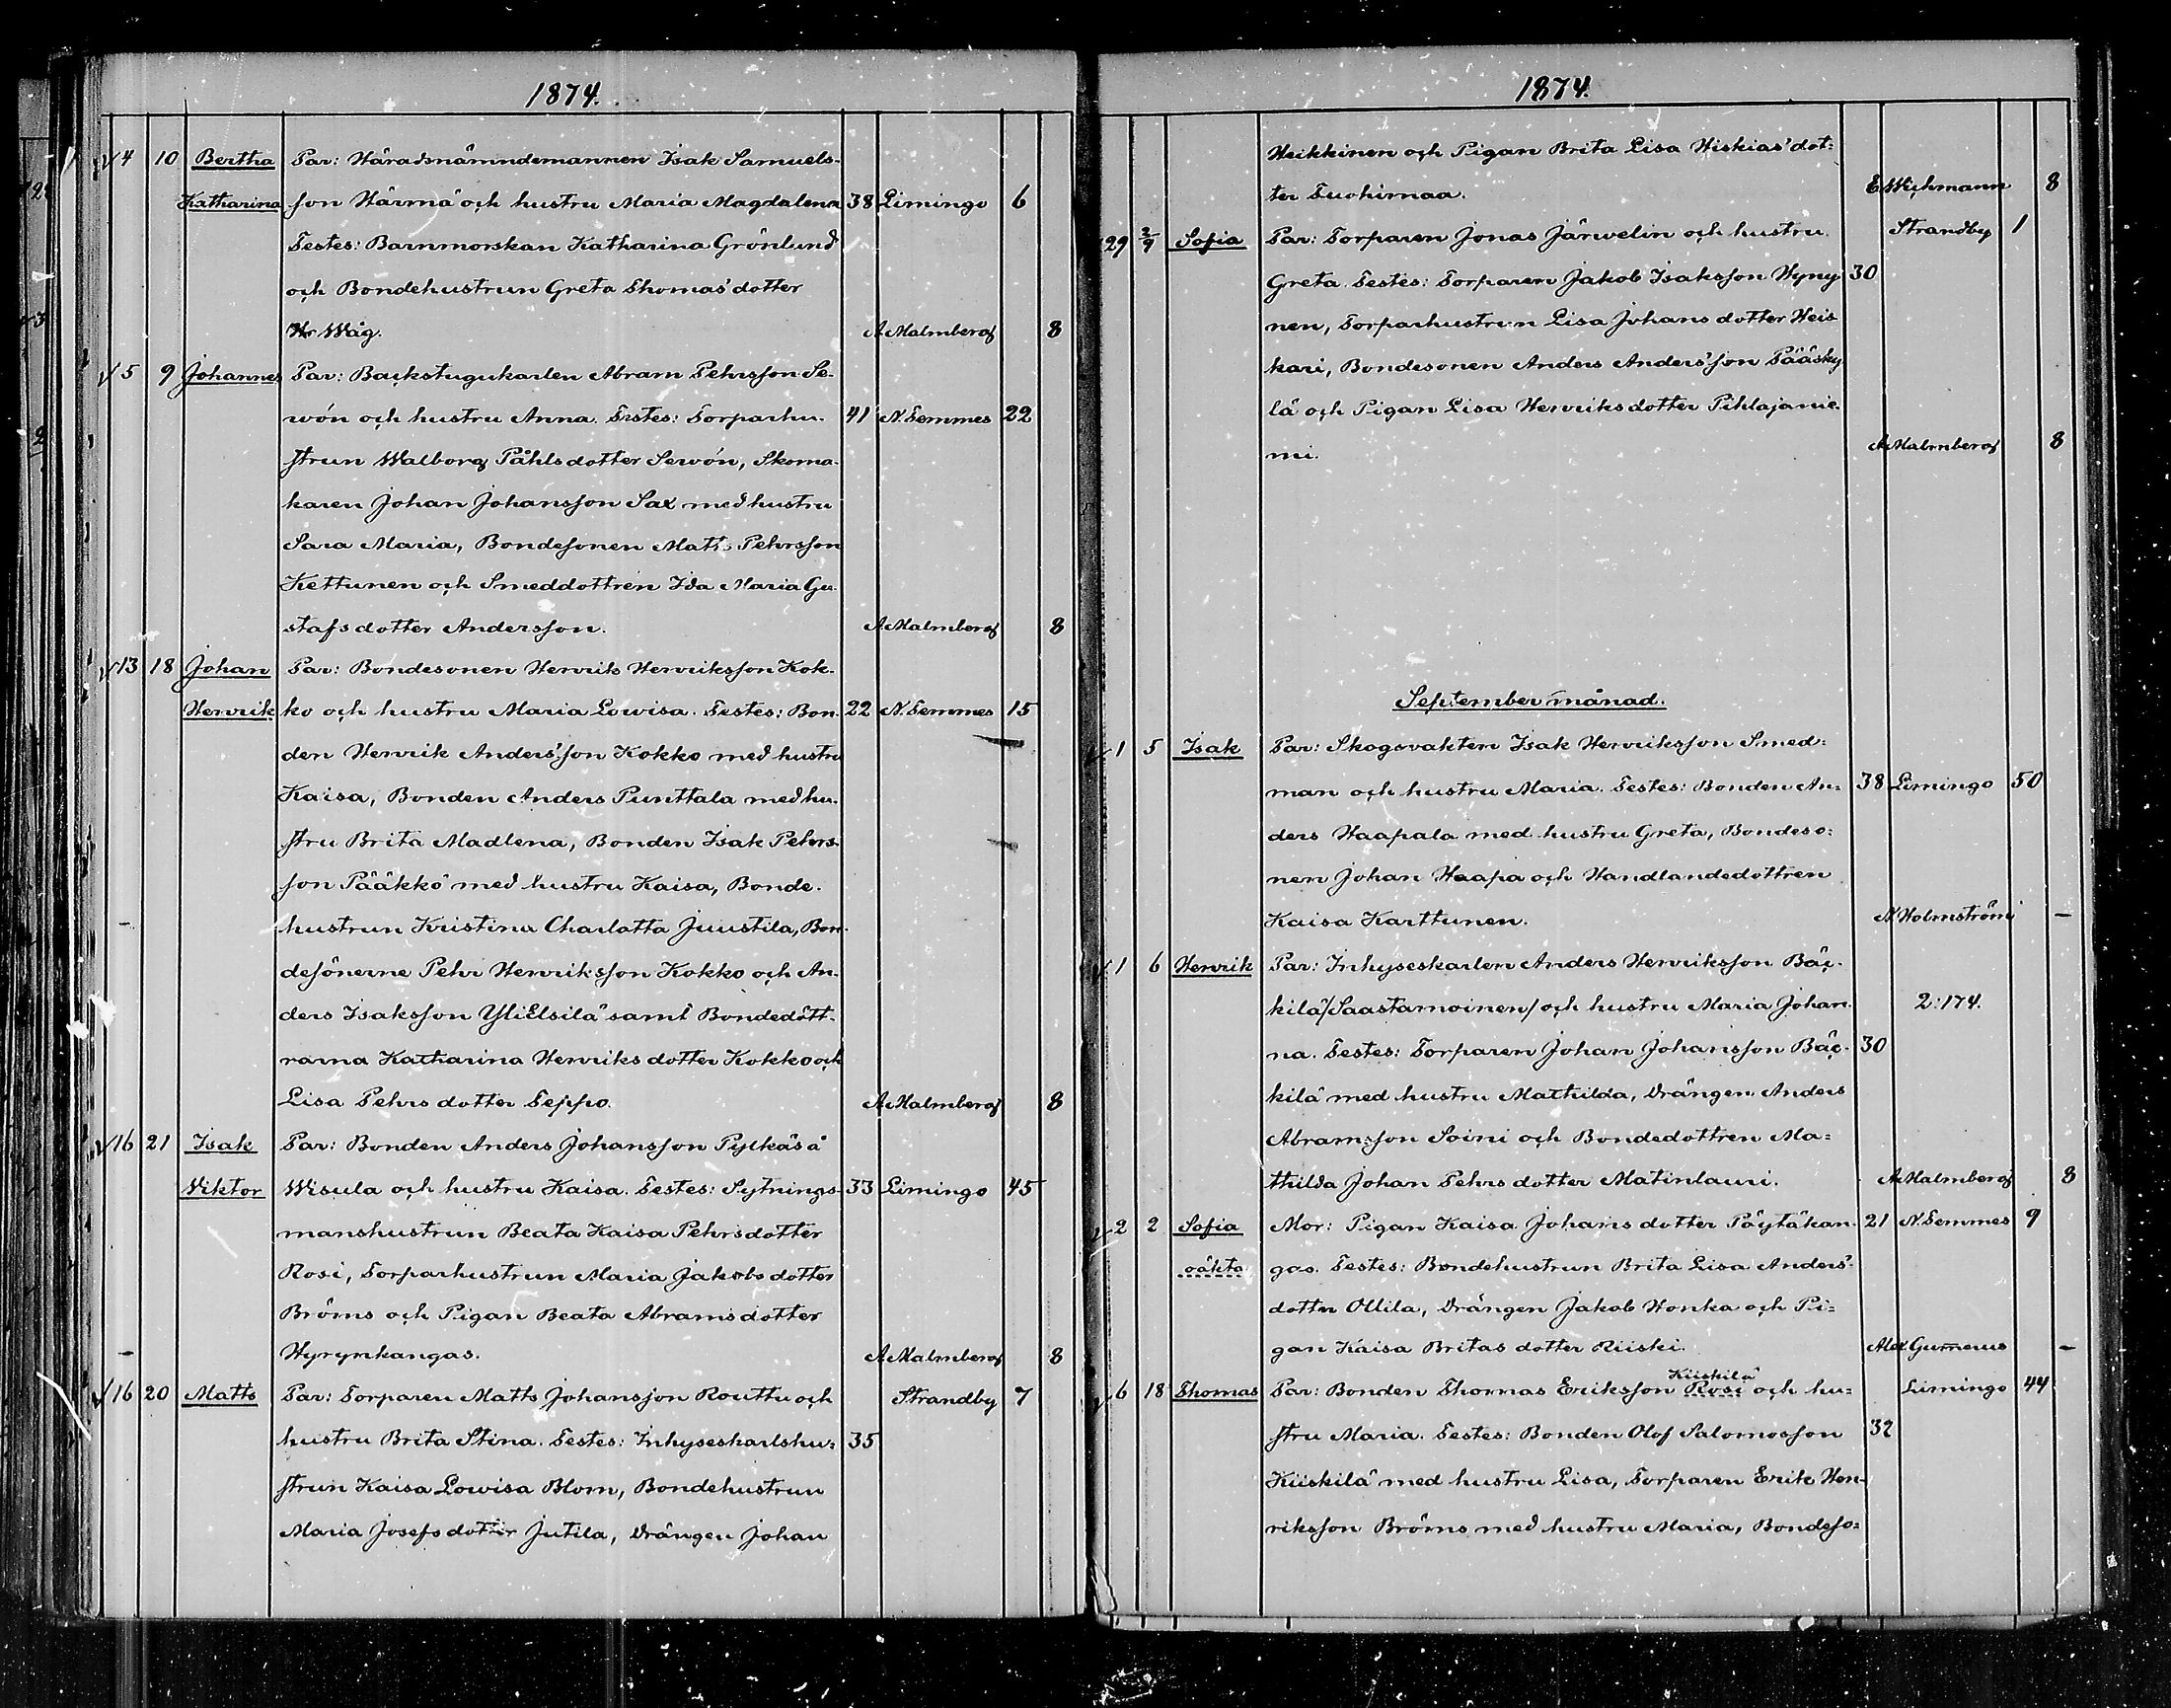 1874.
4 10 Bertha Par: Häradsnämndemannen Isak Samuels-
Katharina son Härmä och hustru Maria Magdalena 38 Limingo 6
Testes: Barnmorskan Katharina Grönlund
och Bondehustrun Greta Thomas'dotter
Wäg. A Malmberg 8
5 9 Johannes Par: Backstugukarlen Abram Pehrsson Se-
wón och hustru Anna. Testes: Torparhu- 41 N. Temmes 22
strun Walborg Påhlsdotter Sewón, Skoma-
karen Johan Johansson Sax med hustru
Sara Maria, Bondesonen Matts Pehrsson
Kettunen och Smeddottren Ida Maria Gu-
stafsdotter Andersson. A Malmberg 8
13 18 Johan Par: Bondesonen Henrik Henriksson Kok-
Henrik ko och hustru Maria Lowisa. Testes: Bon- 22 N. Temmes 15
den Henrik Anders'son Kokko med hustru
Kaisa, Bonden Anders Punttala med hu-
stru Brita Madlena, Bonden Isak Pehrs-
son Pääkkö med hustru Kaisa, Bonde-
hustrun Kristina Charlotta Juustila, Bon-
desönerne Pehr Henriksson Kokko och An-
ders Isaksson YliElsilä samt Bondedött-
rarna Katharina Henriksdotter Kokko och
Lisa Pehrsdotter Teppo. A Malmberg 8
16 21 Isak Par: Bonden Anders Johansson Pylkäs å
Viktor Wisula och hustru Kaisa. Testes: Sytnings- 33 Limingo 45
manshustrun Beata Kaisa Pehrsdotter
Rosi, Torparhustrun Maria Jakobsdotter
Bröms och Pigan Beata Abramsdotter
Hyrynkangas. A Malmberg 8
16 20 Matts Par: Torparen Matts Johansson Routtu och Strandby 7
hustru Brita Stina. Testes: Inhyseskarlshu- 35
strun Kaisa Lowisa Blom, Bondehustrun
Maria Josefsdotter Jutila, Drängen Johan
1874.
Heikkinen och Pigan Brita Lisa Hiskias'dot-
ter Tuohimaa. E Wichmann 8
29 2/9 Sofia Par: Torparen Jonas Järwelin och hustru Strandby 1
Greta. Testes: Torparen Jakob Isaksson Hyny 30
nen, Torparhustrun Lisa Johansdotter Heis
kari, Bondesonen Anders Anders'son Pääsky
lä och Pigan Lisa Henriksdotter Pihlajanie-
mi. A Malmberg 8
September månad.
1 5 Isak Par: Skogsvakten Isak Henriksson Smed-
man och hustru Maria. Testes: Bonden An- 38 Limingo 50
ders Haapala med hustru Greta, Bondeso-
nen Johan Haapa och Handlandedottren
Kaisa Karttunen. N Holmström —
1 6 Henrik Par: Inhyseskarlen Anders Henriksson Bäc-
kilä /Saastamoinen/ och hustru Maria Johan- 2:174.
na. Testes: Torparen Johan Johansson Bäc- 30
kilä med hustru Mathilda, Drängen Anders
Abramsson Soini och Bondedottren Ma-
thilda Johan Pehrsdotter Matinlauri. A Malmberg 8
2 2 Sofia Mor: Pigan Kaisa Johansdotter Päytäkan- 21 N. Temmes 9
oäkta gas. Testes: Bondehustrun Brita Lisa Anders'-
dotter Ollila, Drängen Jakob Honka och Pi-
gan Kaisa Britasdotter Riiski. Alex. Gummerus —
Kiiskilä
6 18 Thomas Par: Bonden Thomas Eriksson Rosi och hu- Limingo 44
stru Maria. Testes: Bonden Olof Salomosson 32
Kiiskilä med hustru Lisa, Torparen Erik Hen-
riksson Bröms med hustru Maria, Bondeso-